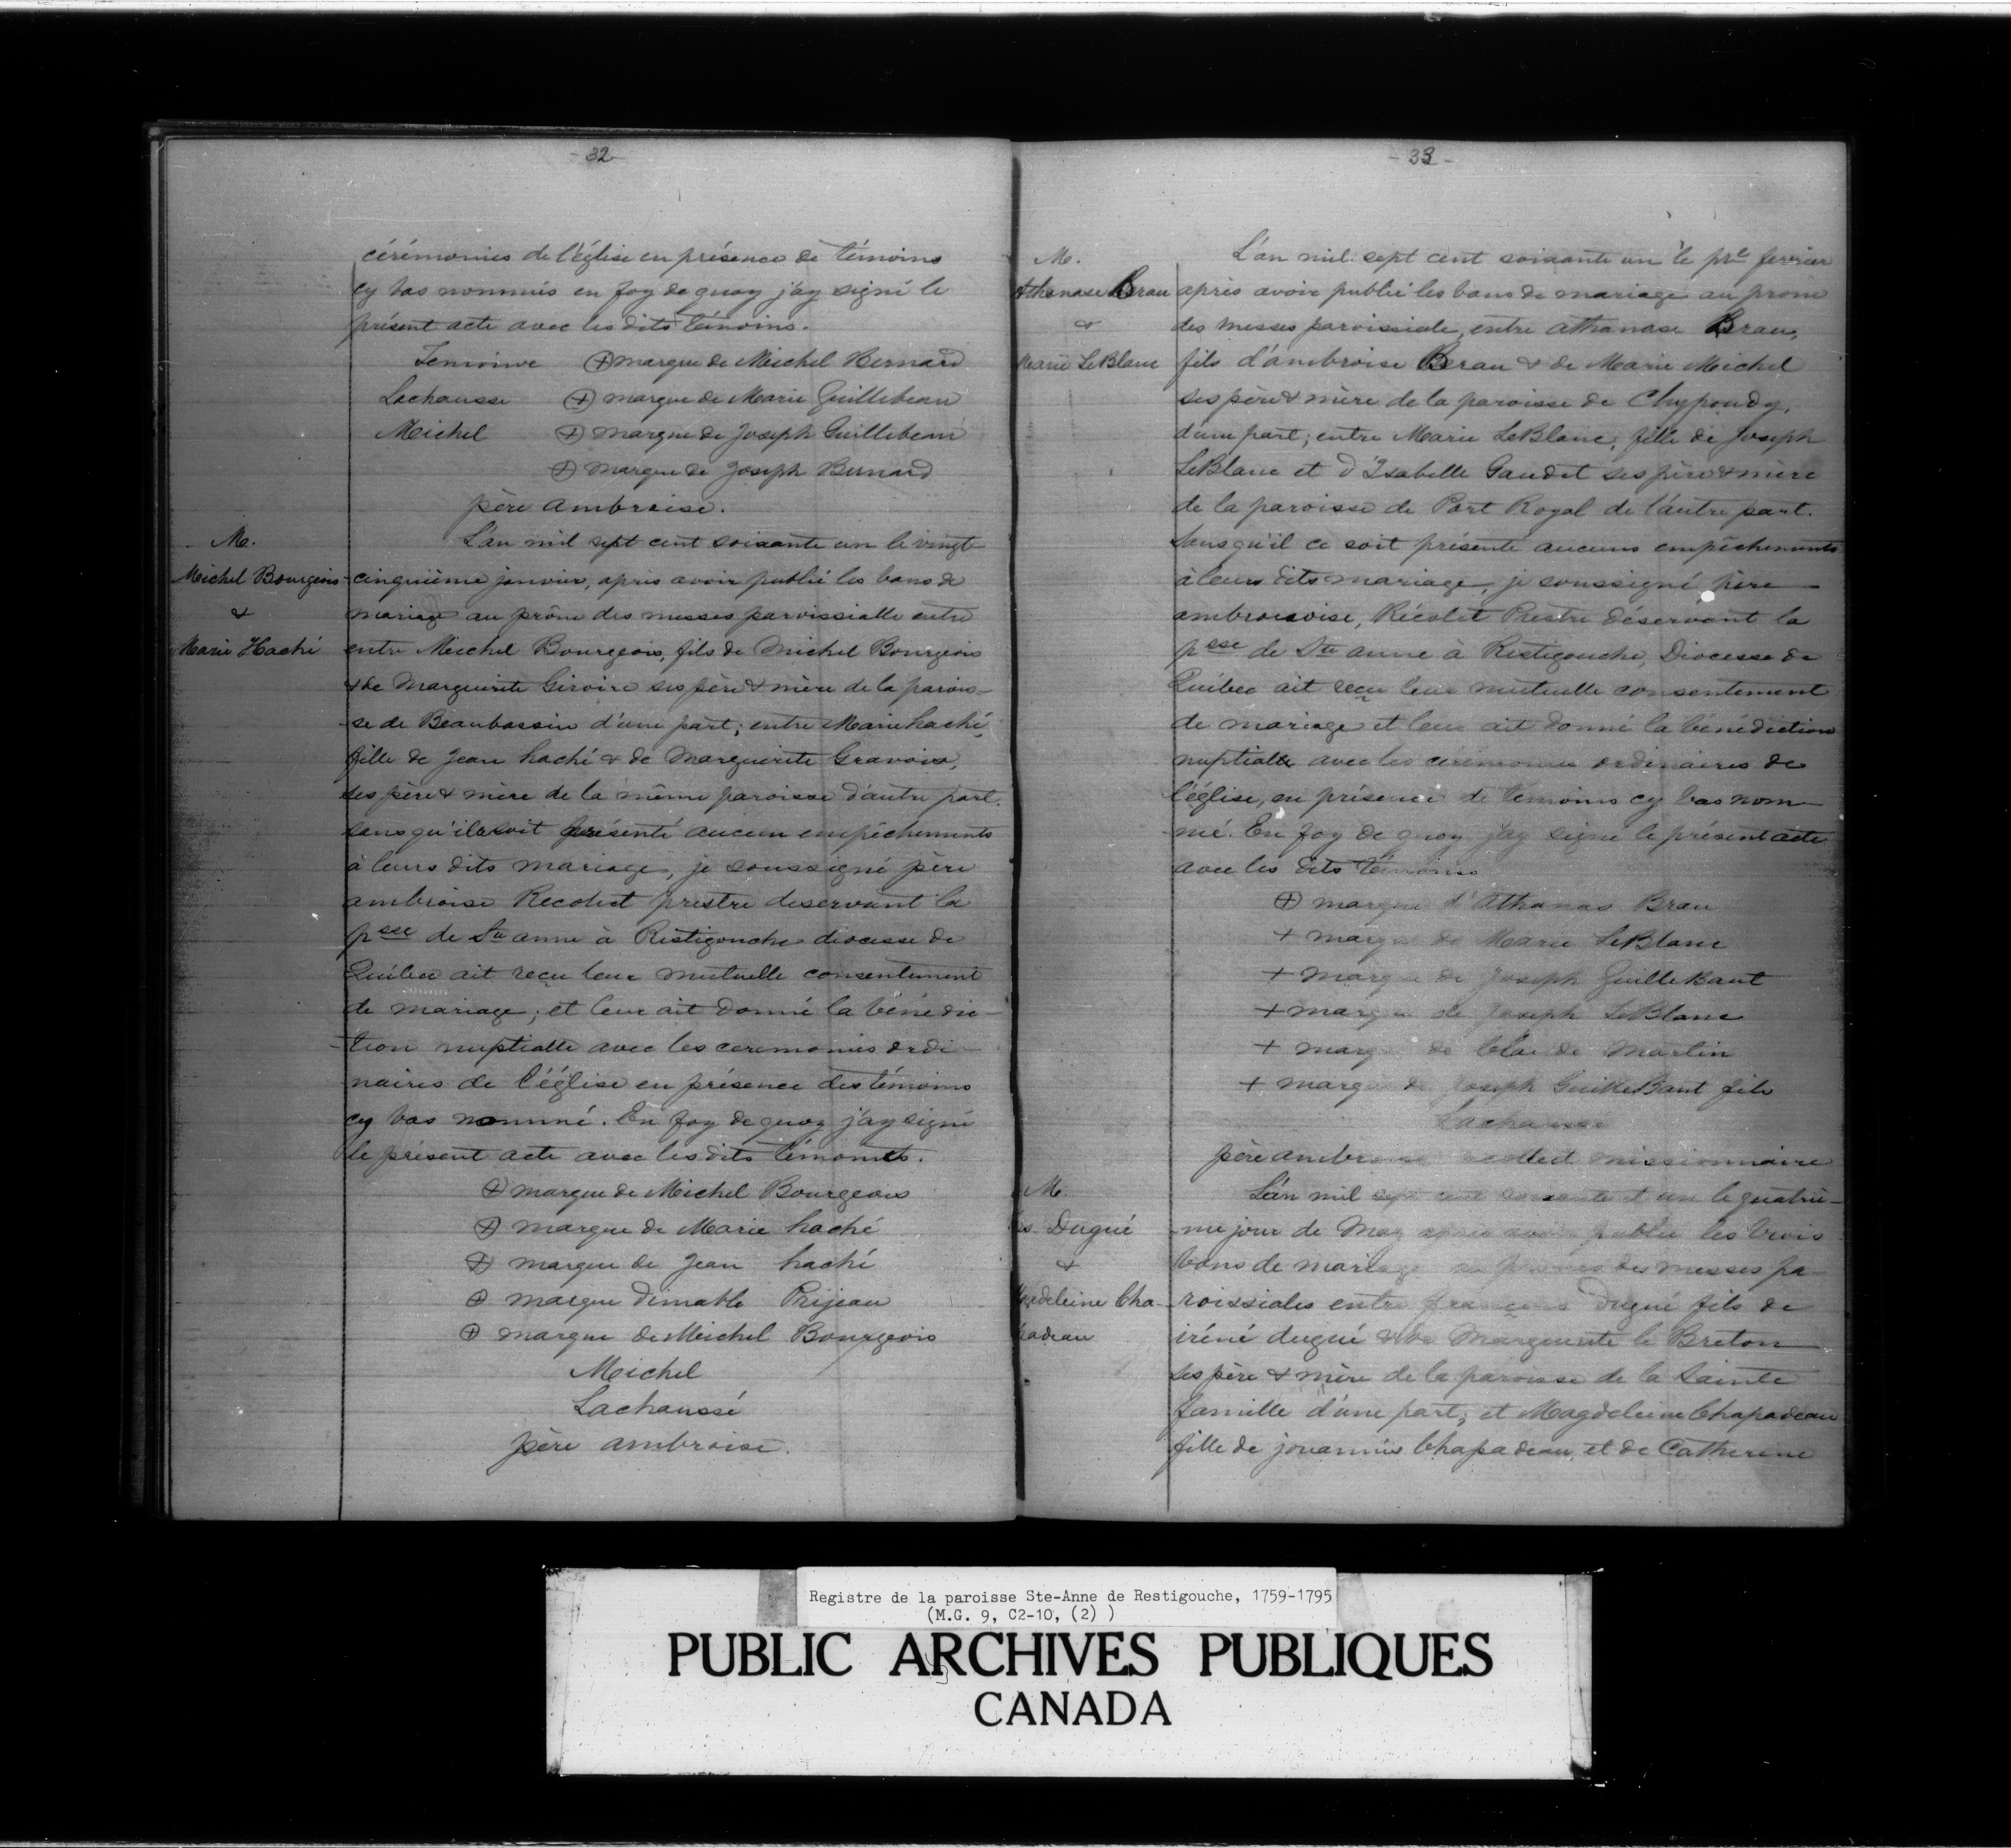 - 32 -
cérémonies de l'église en présence de témoins
cy bas nommés en foy de quoy j'ay signé le
présent acte avec les dits témoins.
Temoinve ⊕ marque de Meichel Bernard
Lachausse ⊕ marque de Marie Guillebeau
Meichel ⊕ marque de Joseph Guillebeau
⊕ marque de Joseph Bernard
père ambroise.
M.
Meichel Bourgeois
&
Marie Haché
L'an mil sept cent soixante un le vingt
cinquième janvier, après avoir publié les bans de
mariage au prône des messes paroissialle entre
entre Meichel Bourgeois, fils de Michel Bourgeois
& de Marguerite Giroire ses père & mère de la parois-
-se de Beaubassin d'une part; entre Marie haché,
fille de Jean haché & de Marguerite Gravois,
ses père & mère de la même paroisse d'autre part.
sans qu'il soit présenté aucun empêchements
à leurs dits mariage, je soussigné père
ambroise Recolect prestre deservant la
psse de Ste anne à Ristigouche diocesse de
Québec ait reçu leur mutuelle consentement
de mariage; et leur ait donné la bénédic-
-tion nuptialle avec les ceremonies ordi-
naires de l'église en présence des témoins
cy bas nommé. En foy de quoy j'ay signé
le présent acte avec les dits témoins.
⊕ marque de Michel Bourgeois
⊕ marque de Marie haché
⊕ marque de Jean haché
⊕ marque dimable Prijeau
⊕ marque de Meichel Bourgeois
Meichel
Lachaussé
père ambroise.
- 33 -
M.
Athanase Brau
&
Marie LeBlanc
L'an mil sept cent soixante un le pre fevrier
après avoir publié les bans de mariage au prone
des messes paroissiale, entre athanase Brau,
fils d'ambroise Brau & de Marie Meichel
ses père & mère de la paroisse de Chypoudy,
d'une part; entre Marie LeBlanc, fille de Joseph
LeBlanc et d'Isabelle Gaudet ses père & mère
de la paroisse de Port Royal de l'autre part.
Sans qu'il ce soit présente aucuns empêchements
à leurs dits mariage, je soussigné père
ambroisoise, Récolet Prestre déservant la
psse de Ste anne à Ristigouche, Diocesse de
Québec ait reçu leur mutuelle consentement
de mariage et leur ait donné la bénédiction
nuptialle avec les cérémonies ordinaires de
l'église, en présence de témoins cy bas nom-
mé. En foy de quoy j'ay signé le présent acte
avec les dits témoins
⊕ marque d'Athanas Brau
+ marque de Marie LeBlanc
+ marque de Joseph GuilleBaut
+ marque de Joseph LeBlanc
+ marque de Claude Martin
+ marque de Joseph GuilleBaut fils
Lachausse
père ambroise recollect missionnaire
M.
Dugué
&
Madeleine Cha-
padeau
L'an mil sept cent soixante et un le quatriè-
-me jour de May après avoir publié les trois
bans de mariage au des messes pa-
roissiales entre françois Dugué fils de
iréné dugué & de Marguerite le Breton
ses père & mère de la paroisse de la Sainte
famille d'une part; et Magdeleine Chapadeau
fille de jouannis Chapadeau, et de Catherine
Registre de la paroisse Ste-Anne de Restigouche, 1759-1795
(M.G. 9, C2-10, (2) )
PUBLIC ARCHIVES PUBLIQUES
CANADA